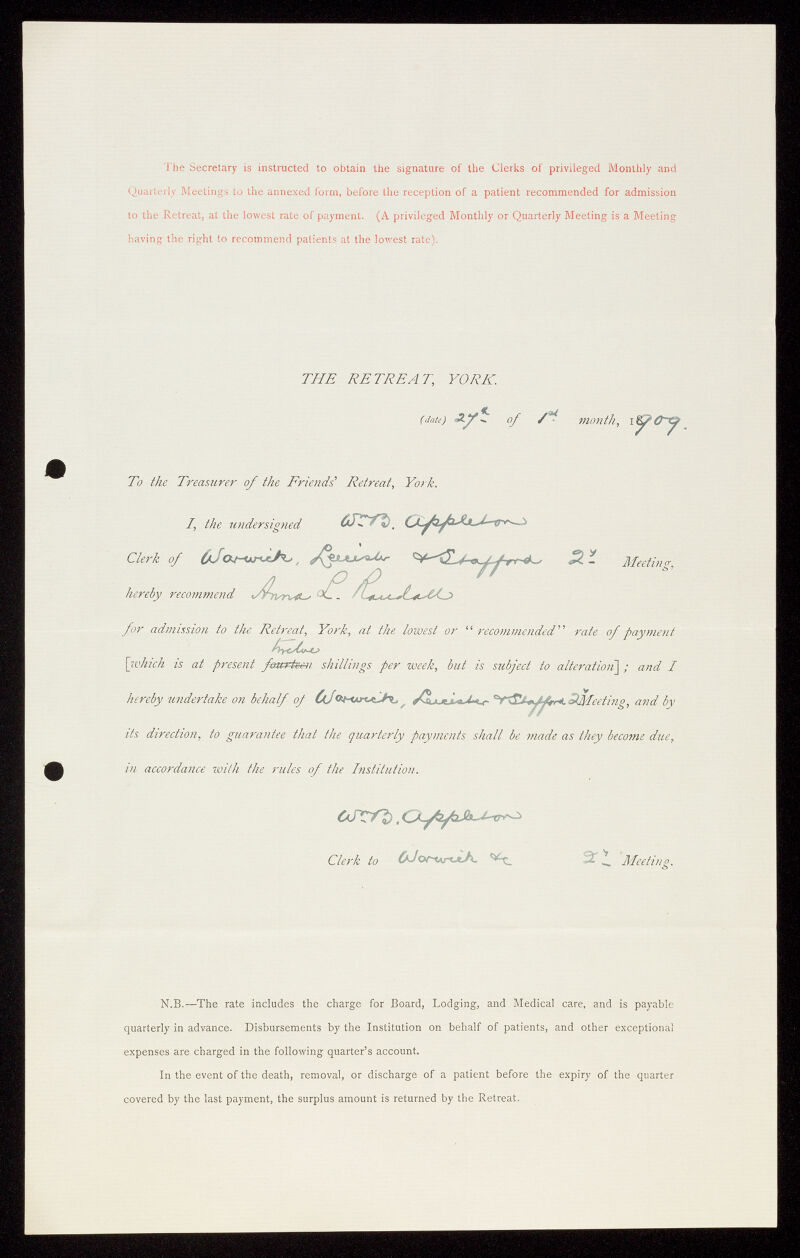 The Secretary is instructed to obtain the signature of the Clerks of privileged Monthly and
Quarterly Meetings to the annexed form, before the reception of a patient recommended for admission
to the Retreat, at the lowest rate of payment. (A privileged Monthly or Quarterly Meeting is a Meeting
having the right to recommend patients at the lowest rate).
THE RETREAT, YORK.
(date) 27th of 1st month, 1909.
To the Treasurer of the Friends' Retreat, York.
I, the undersigned Wm B. Appleton
Clerk of Warwick, Leicister & Stafford 2y Meeting,
hereby recommend Anna L. Randall
for admission to the Retreat, York, at the lowest or "recommended" rate of payment
twelve
[which is at present fourteen shillings per week, but is subject to alteration]; and I
hereby undertake on behalf of Warwick, Leicister & Stafford 2y Meeting, and by
its direction, to guarantee that the quarterly payments shall be made as they become due,
in accordance with the rules of the Institution.
Wm B. Appleton
Clerk to Warwick &c 2y Meeting.
N.B.—The rate includes the charge for Board, Lodging, and Medical care, and is payable
quarterly in advance. Disbursements by the Institution on behalf of patients, and other exceptional
expenses are charged in the following quarter's account.
In the event of the death, removal, or discharge of a patient before the expiry of the quarter
covered by the last payment, the surplus amount is returned by the Retreat.